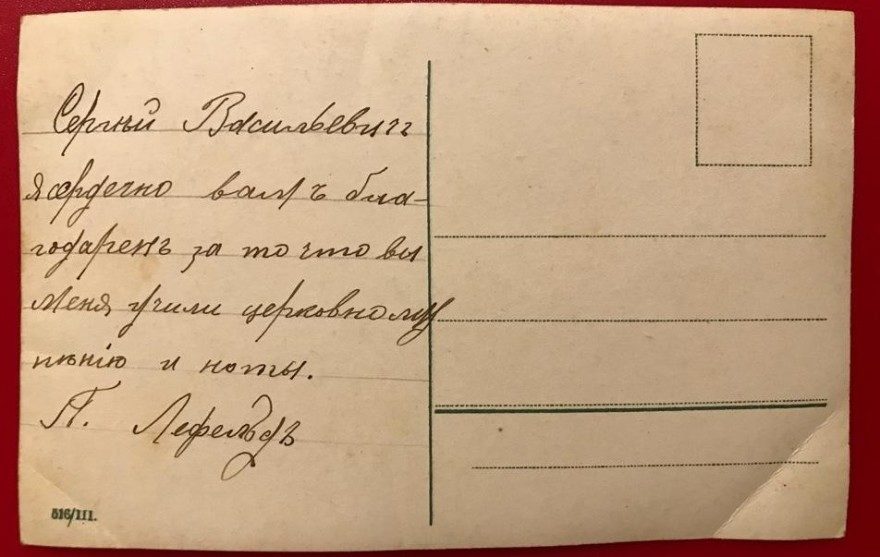 Сергѣй Васильевичъ
я сердечно вамъ бла-
годаренъ за то что вы
меня учили церковному
пѣнію и ноты.
П. Лефельдъ
516/111.